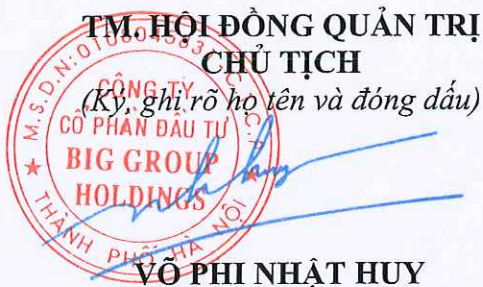 TM. HỘI ĐỒNG QUẢN TRỊ
CHỦ TỊCH
(Ký, ghi rõ họ tên và đóng dấu)
CÔNG TY
CỔ PHẦN ĐẦU TƯ
BIG GROUP
HOLDINGS
THÀNH PHỐ HÀ NỘI
VÕ PHI NHẬT HUY